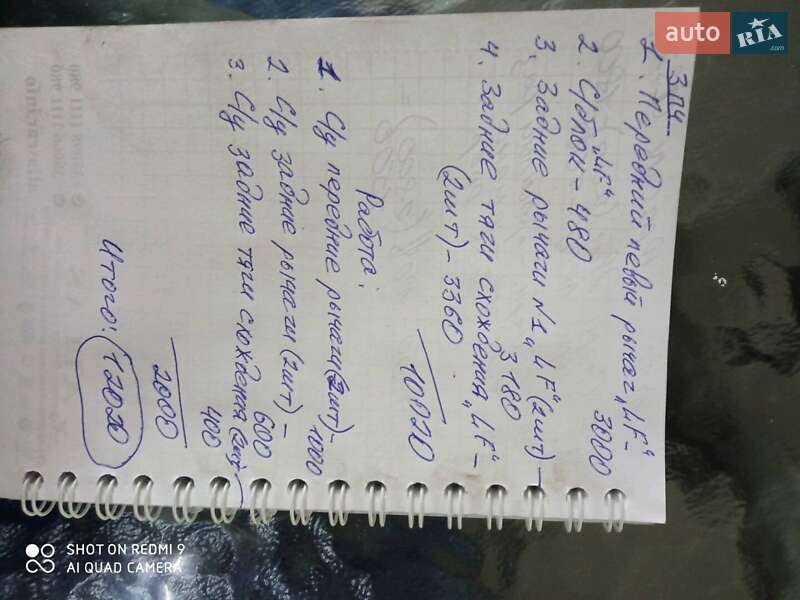 З.П.Ч
1. Передний левый рычаг „LF“ –
3000
2. С/блок „LF“ – 480
3. Задние рычаги №1 „LF“ (2шт) –
3180
4. Задние тяги схождения „LF“ –
(2шт) – 3360
10020
Работа:
1. С/у передние рычаги (2шт) –
1000
2. С/у задние рычаги (2шт) –
600
3. С/у задние тяги схождения (2шт) –
400
2000
Итого: 12020
auto RIA .com
SHOT ON REDMI 9
AI QUAD CAMERA